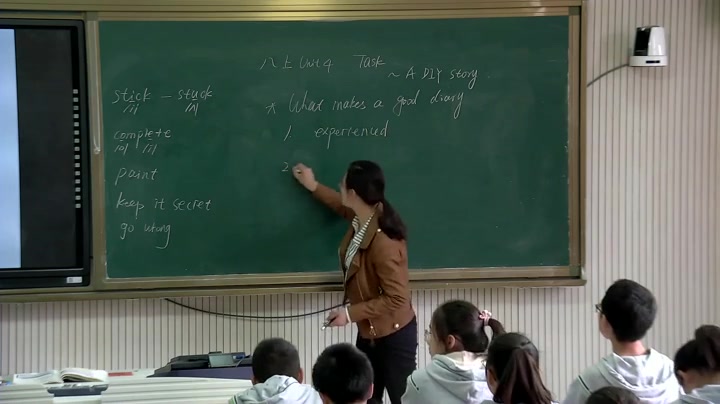 八上 Unit 4 Task
~ A DIY story.
stick - stuck
/ɪ/ /ʌ/
complete
/ə/ /iː/
paint
keep it secret
go wrong
* What makes a good diary
1. experienced
2